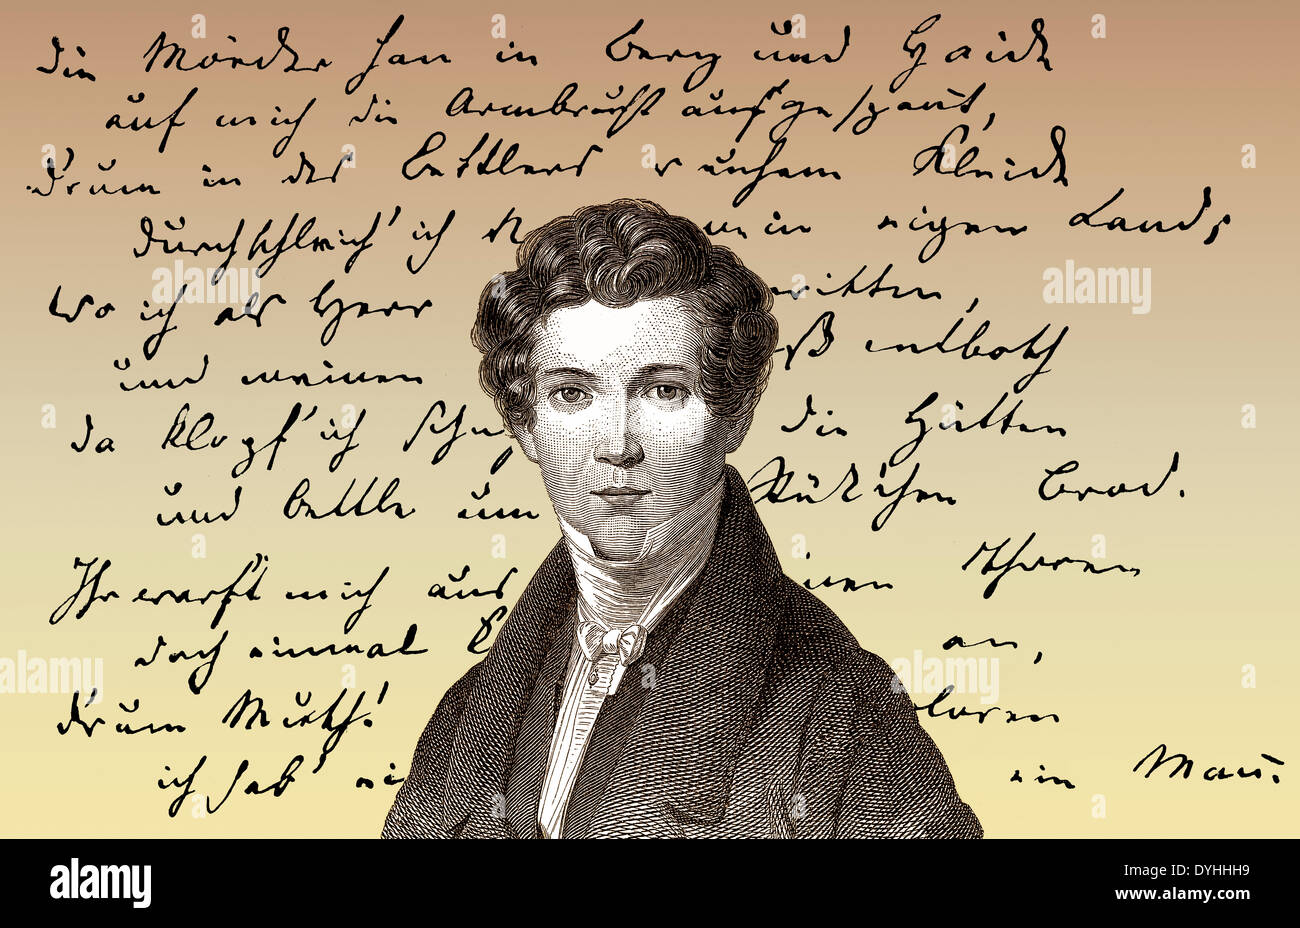 die Mörder han in Berg und Haide
auf mich die Armbrust aufgespannt,
Drum in des Bettlers Kleide
durchschleich' ich mein eigen Land;
Wo ich als Herr ritten,
und meinen entboth
da klopf' ich die Hütten
und bettle um Stückchen Brod.
Ihr warft mich aus
doch einmal an,
Drum Muth! loren
ich hab' ein Mau.
alamy
alamy stock photo
DYHHH9
www.alamy.com